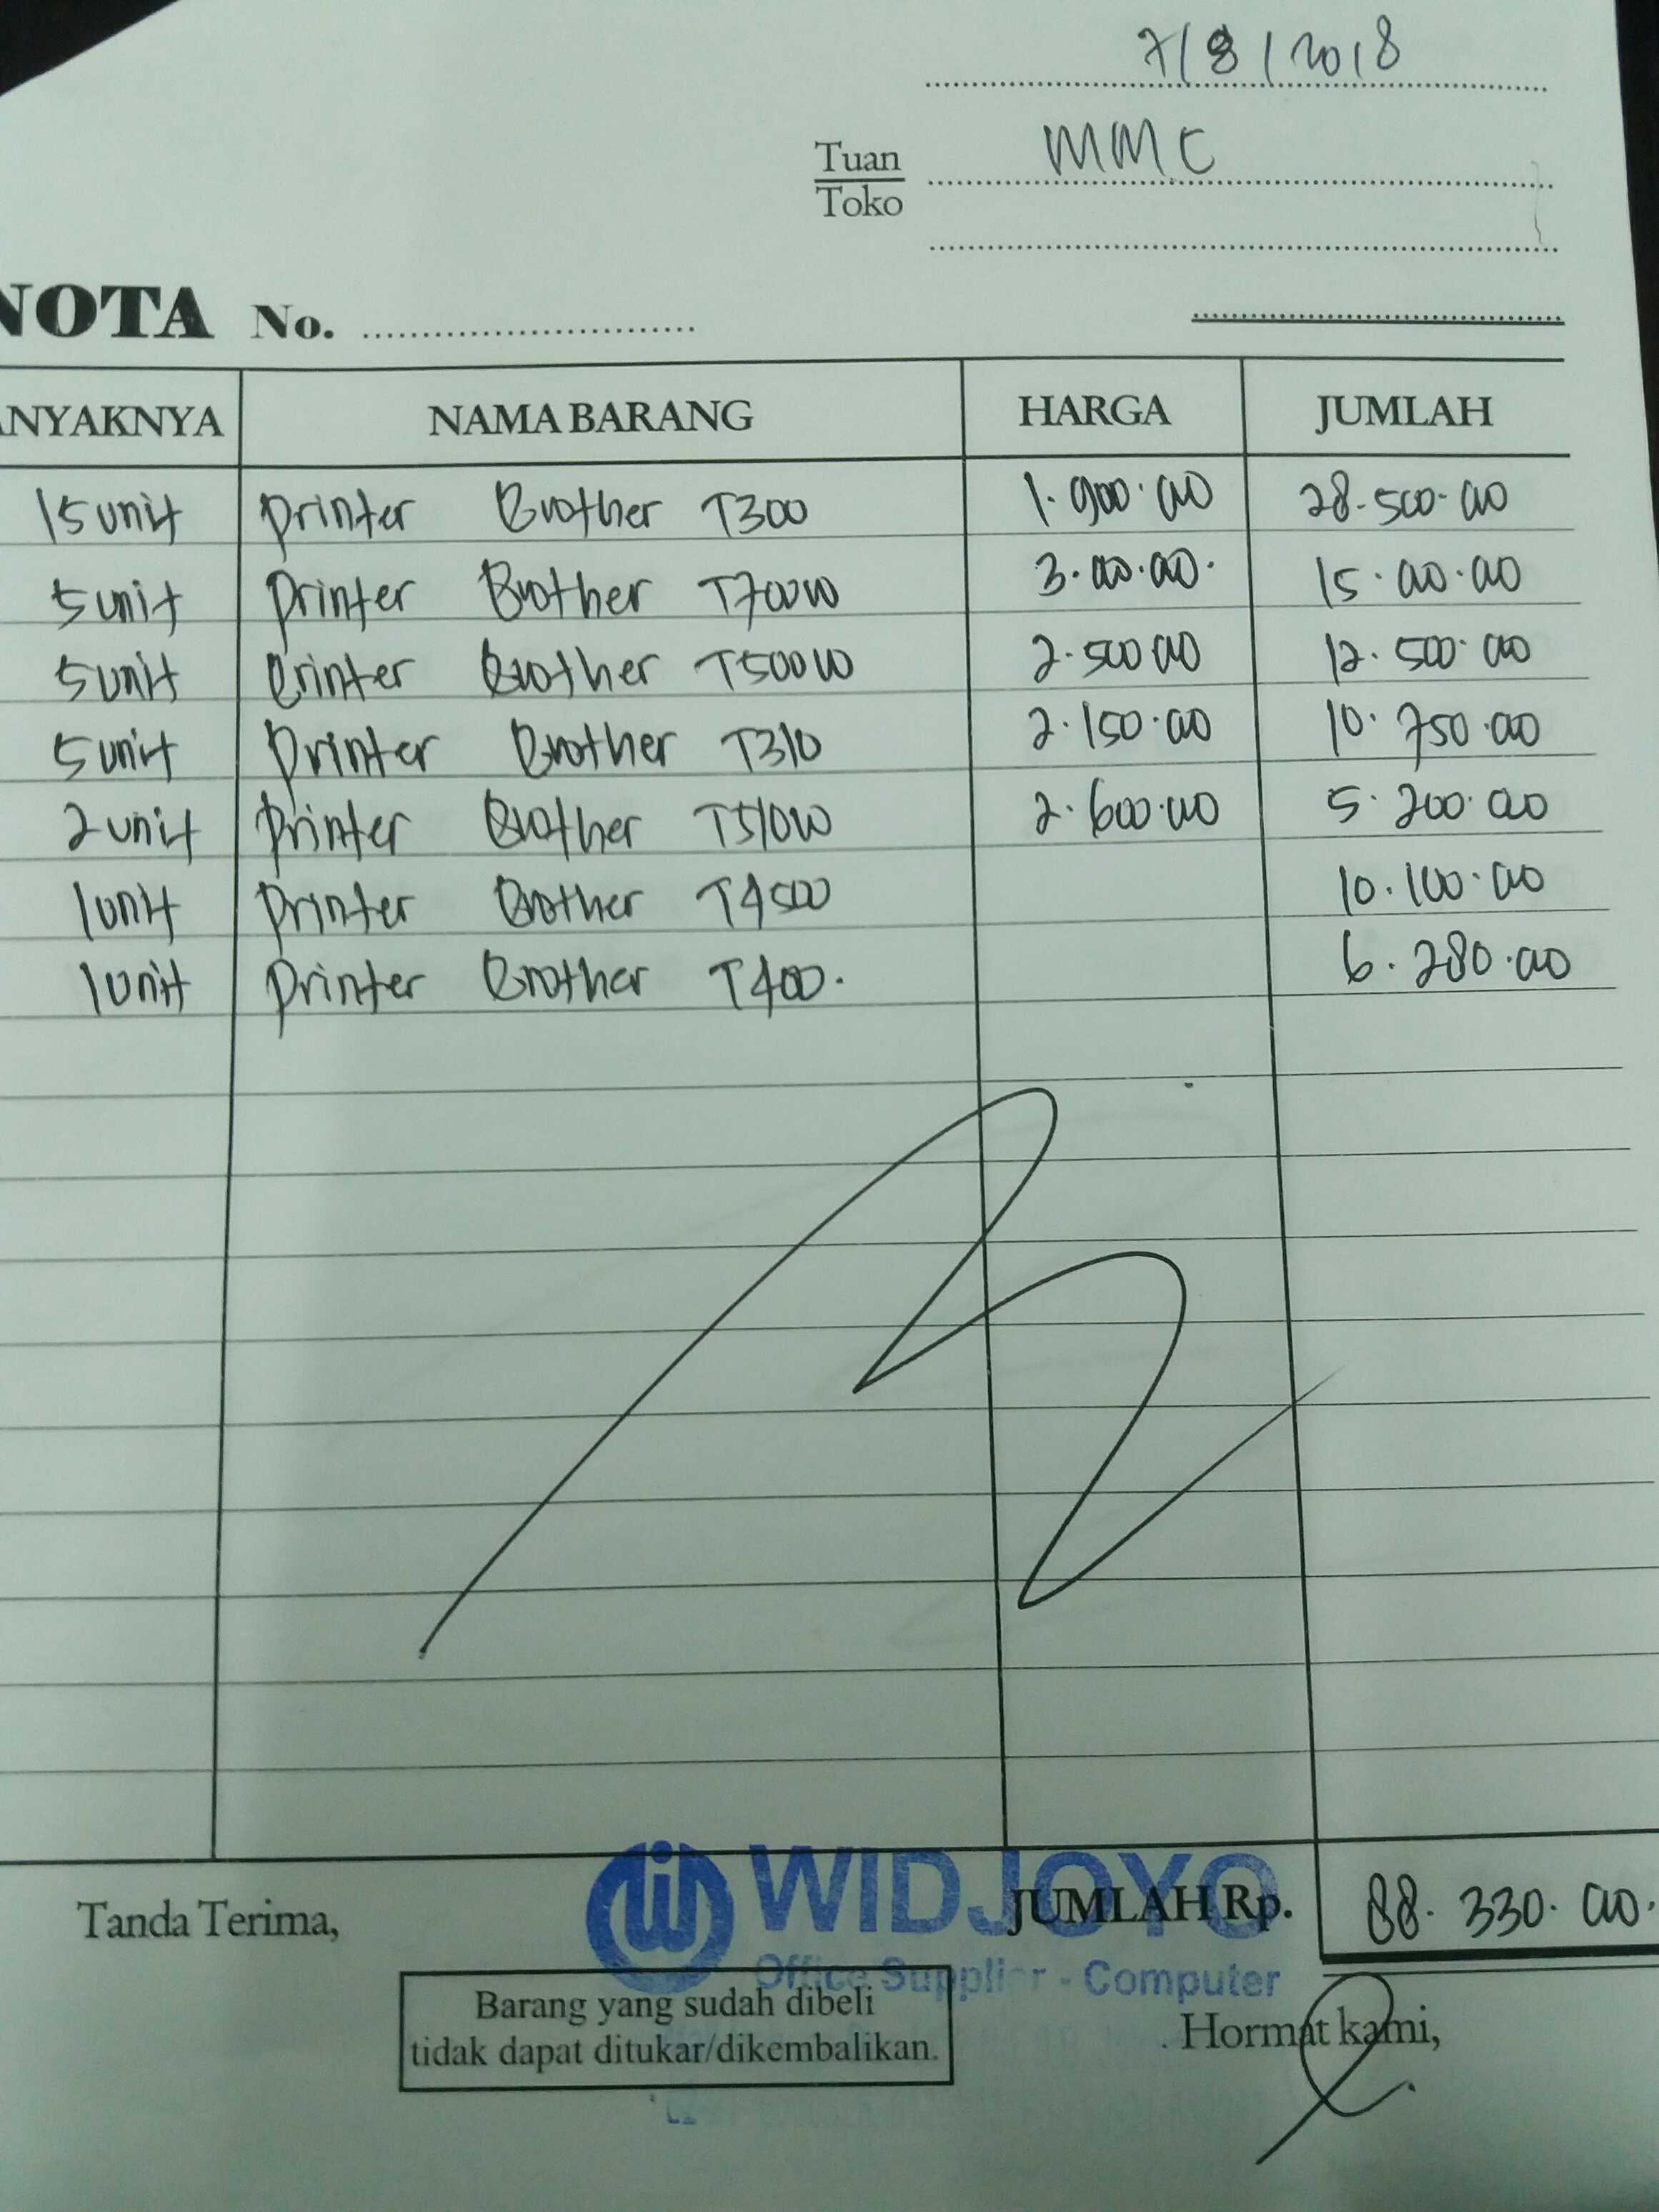 7/8/2018
Tuan MMC
Toko
NOTA No.
ANYAKNYA NAMA BARANG HARGA JUMLAH
15 unit Printer Brother T300 1.900.000 28.500.000
5 unit Printer Brother T700W 3.000.000. 15.000.000
5 unit Printer Brother T500W 2.500.000 12.500.000
5 unit Printer Brother T310 2.150.000 10.750.000
2 unit Printer Brother T510W 2.600.000 5.200.000
1 unit Printer Brother T4500 10.100.000
1 unit Printer Brother T400. 6.280.000
WIDJOYO
Tanda Terima, JUMLAH Rp. 88.330.000.
Office Supplier - Computer
Barang yang sudah dibeli
tidak dapat ditukar/dikembalikan.
Hormat kami,